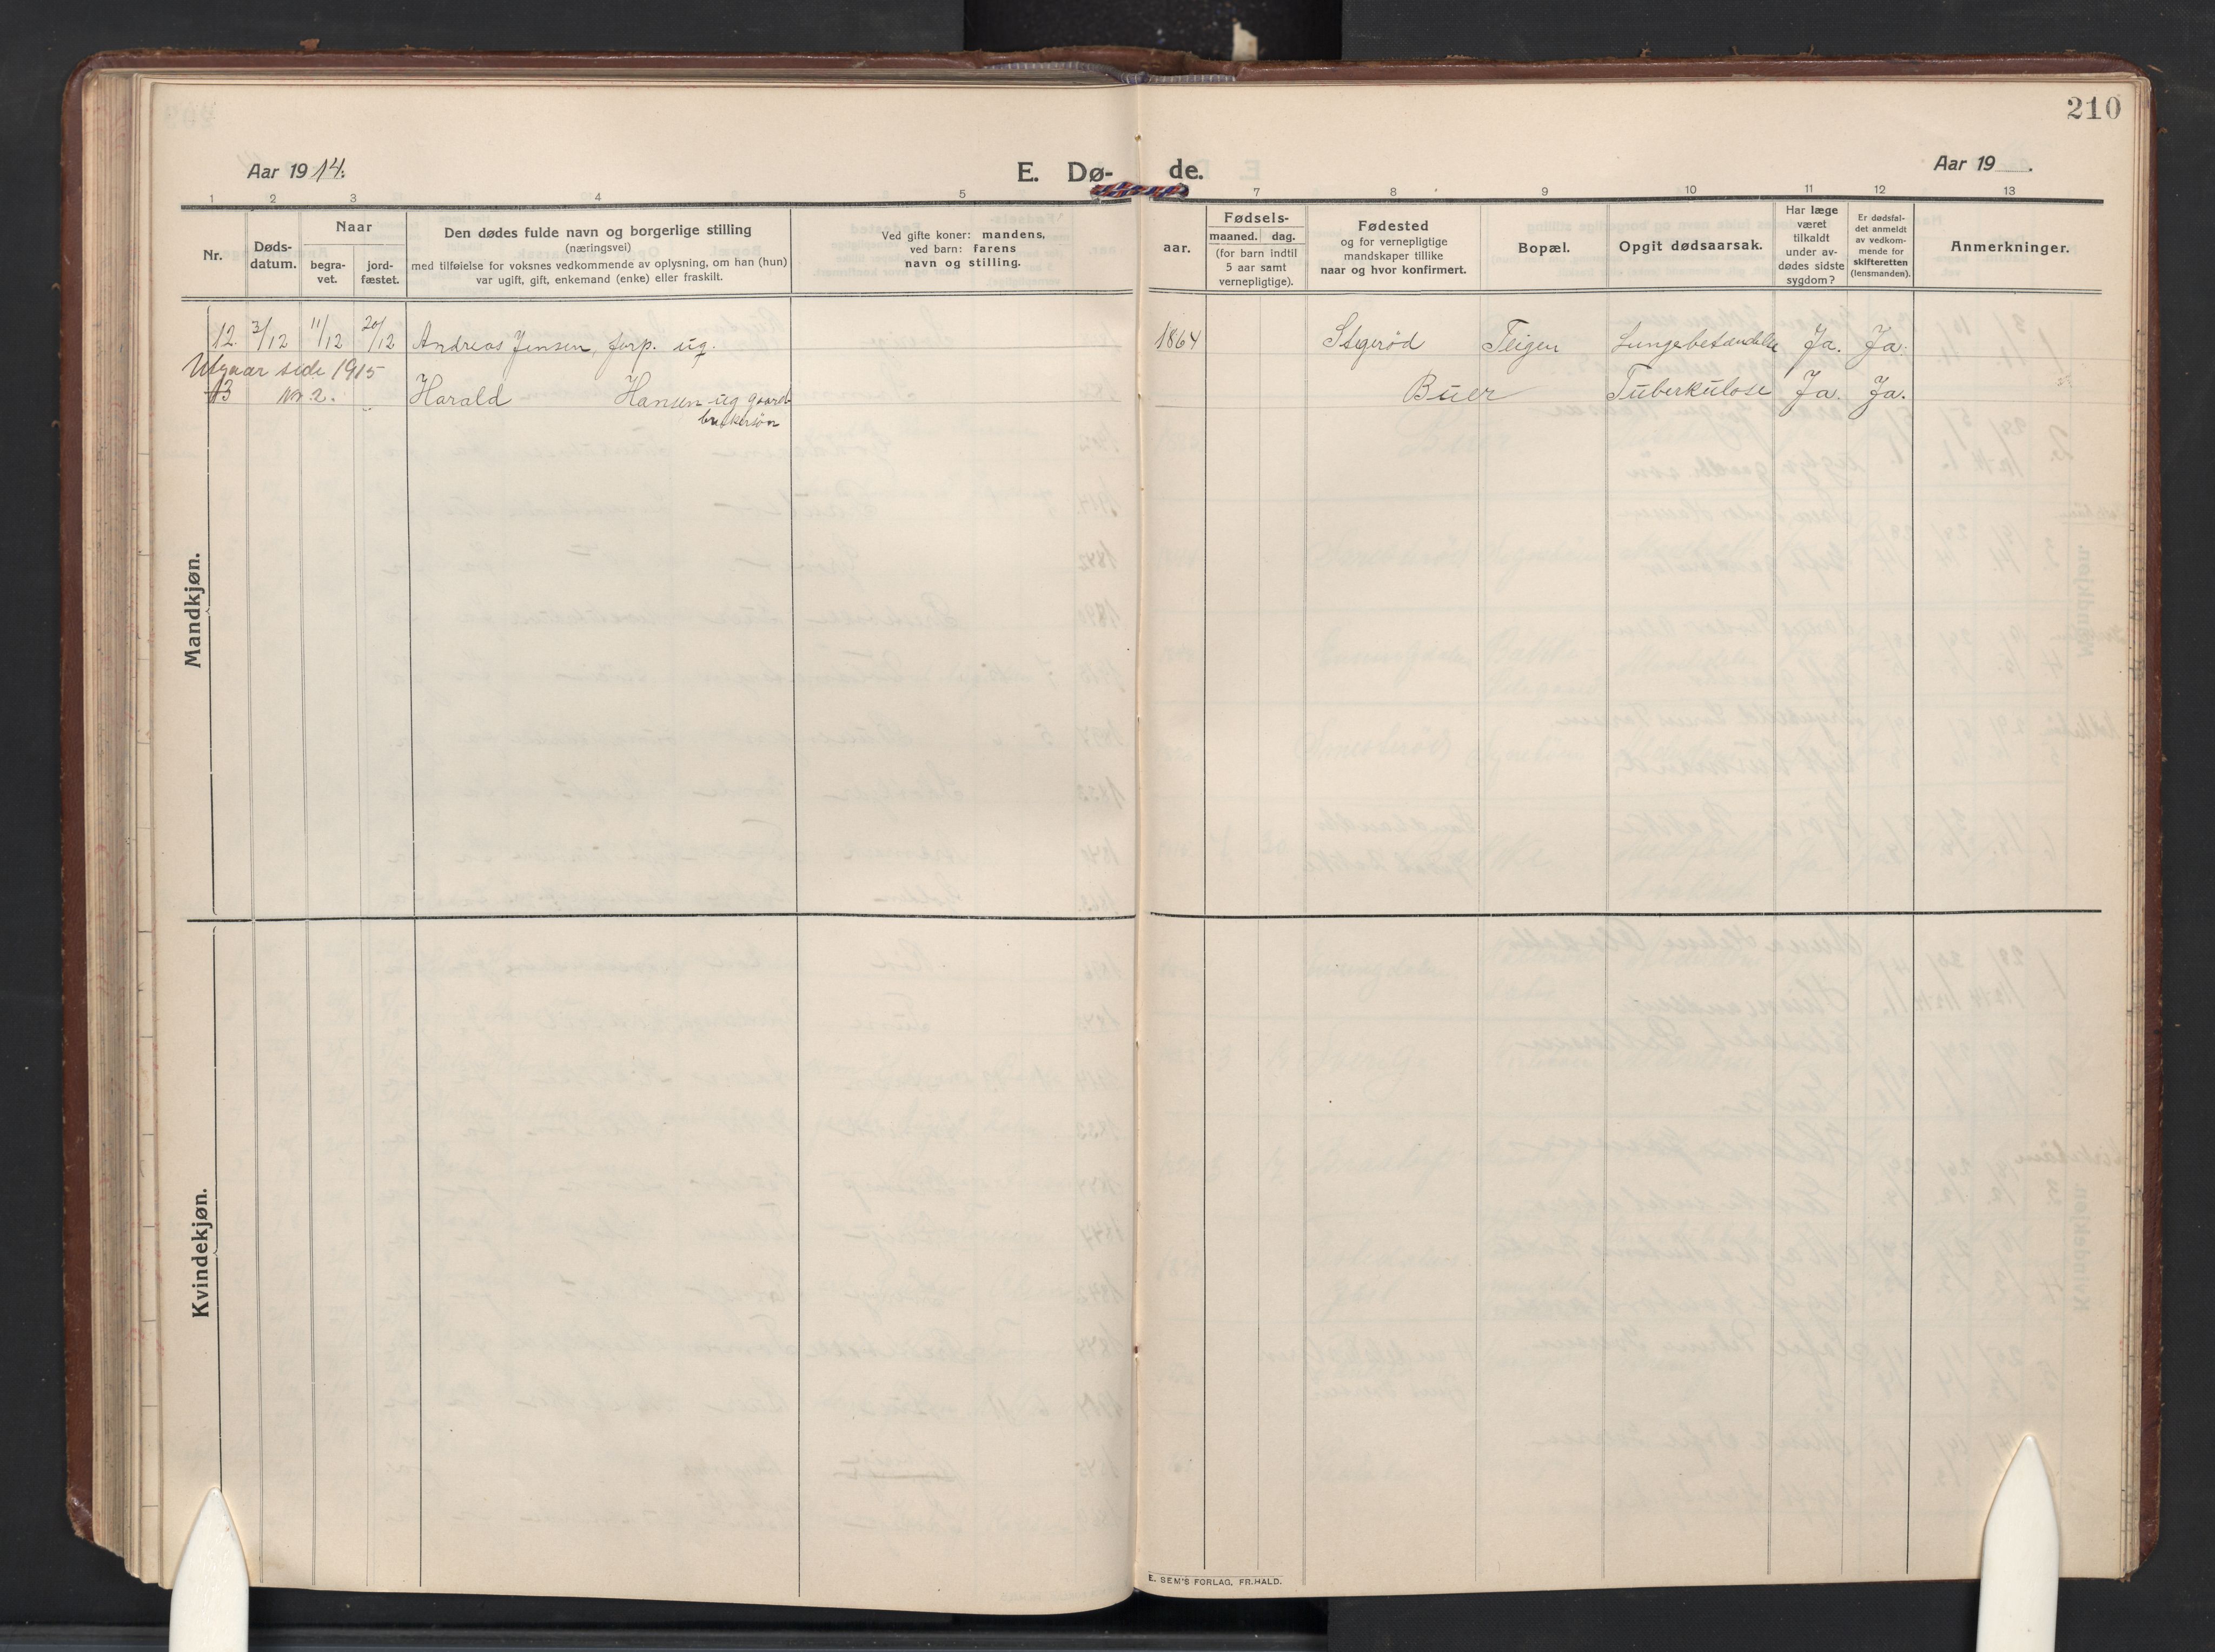 210
Aar 1914.
E. Dø-
de.
Aar 19 .
1 2 3 4 5 7 8 9 10 11 12 13
Nr.
Døds-
datum.
Naar
begra-
vet.
jord-
fæstet.
Den dødes fulde navn og borgerlige stilling
(næringsvei)
med tilføielse for voksnes vedkommende av oplysning, om han (hun)
var ugift, gift, enkemand (enke) eller fraskilt.
Ved gifte koner: mandens,
ved barn: farens
navn og stilling.
aar.
Fødsels-
maaned. dag.
(for barn indtil
5 aar samt
vernepligtige).
Fødested
og for vernepligtige
mandskaper tillike
naar og hvor konfirmert.
Bopæl.
Opgit dødsaarsak.
Har læge
været
tilkaldt
under av-
dødes sidste
sygdom?
Er dødsfal-
det anmeldt
av vedkom-
mende for
skifteretten
(lensmanden).
Anmerkninger.
Mandkjøn.
12. 3/12 11/12 20/12 Andreas Jensen, forp. ug. 1864 Stegerød Teigen Lungebetændelse Ja. Ja.
Utgaar side 1915
13 Nr. 2. Harald Hansen ug gaard- Buer Tuberkulose Ja. Ja.
brukersøn
Kvindekjøn.
E. SEM'S FORLAG, FR.HALD.